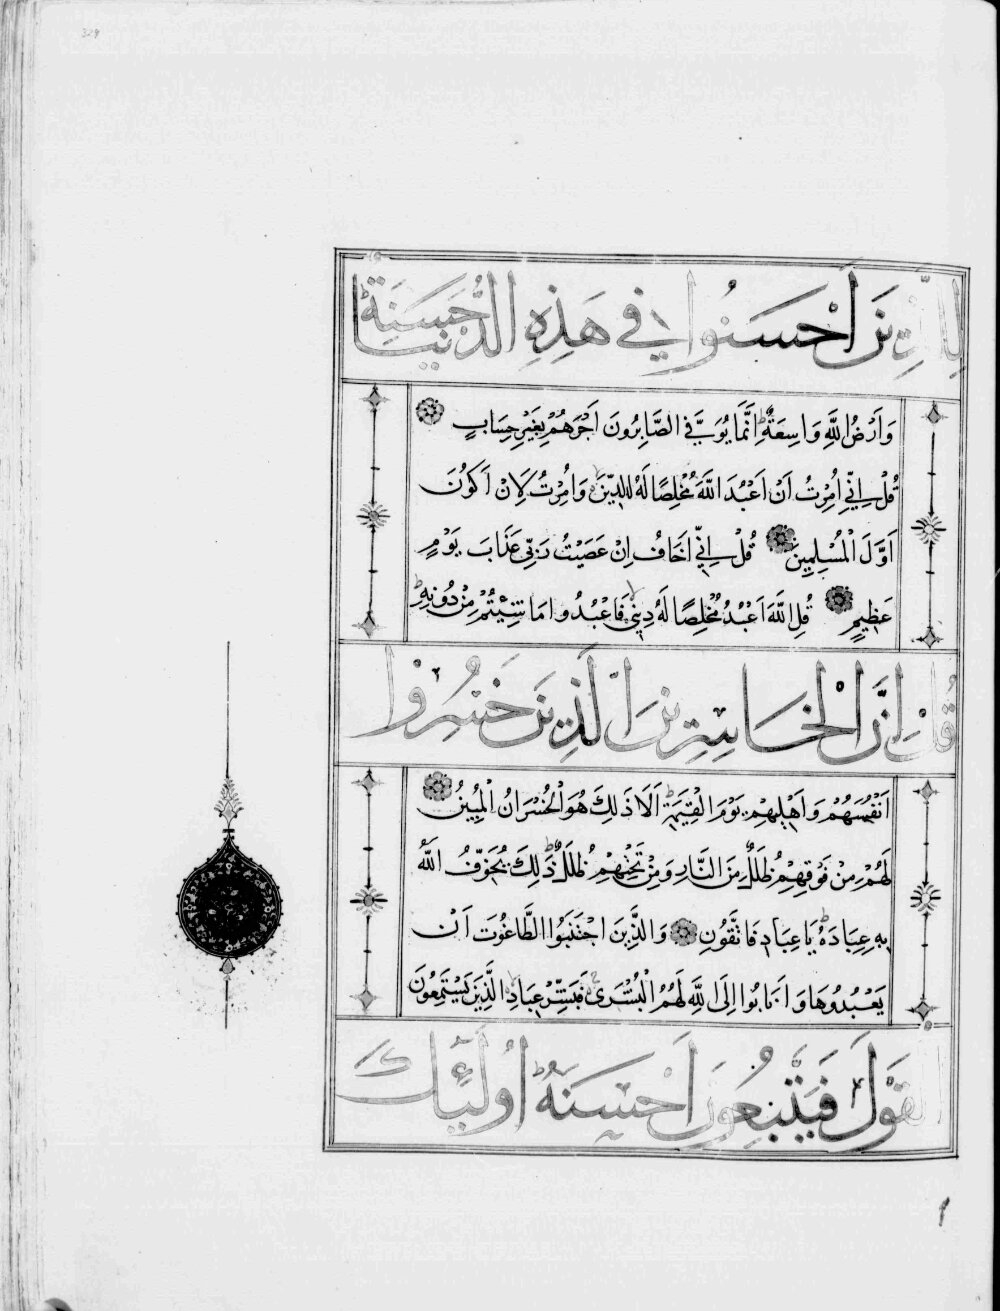 329
لِلَّذِينَ أَحْسَنُوا فِي هَذِهِ الدُّنْيَا حَسَنَةٌ
وَأَرْضُ اللَّهِ وَاسِعَةٌ إِنَّمَا يُوَفَّي الصَّابِرُونَ أَجْرَهُمْ بِغَيْرِ حِسَابٍ
قُلْ إِنِّي أُمِرْتُ أَنْ أَعْبُدَ اللَّهَ مُخْلِصًا لَهُ الدِّينَ وَأُمِرْتُ لِأَنْ أَكُونَ
أَوَّلَ الْمُسْلِمِينَ قُلْ إِنِّي أَخَافُ إِنْ عَصَيْتُ رَبِّي عَذَابَ يَوْمٍ
عَظِيمٍ قُلِ اللَّهَ أَعْبُدُ مُخْلِصًا لَهُ دِينِي فَاعْبُدُوا مَا شِئْتُمْ مِنْ دُونِهِ
قُلْ إِنَّ الْخَاسِرِينَ الَّذِينَ خَسِرُوا
أَنْفُسَهُمْ وَأَهْلِيهِمْ يَوْمَ الْقِيَمَةِ أَلَا ذَلِكَ هُوَ الْخُسْرَانُ الْمُبِينُ
لَهُمْ مِنْ فَوْقِهِمْ ظُلَلٌ مِنَ النَّارِ وَمِنْ تَحْتِهِمْ ظُلَلٌ ذَلِكَ يُخَوِّفُ اللَّهُ
بِهِ عِبَادَهُ يَا عِبَادِ فَاتَّقُونِ وَالَّذِينَ اجْتَنَبُوا الطَّاغُوتَ أَنْ
يَعْبُدُوهَا وَأَنَابُوا إِلَى اللَّهِ لَهُمُ الْبُشْرَى فَبَشِّرْ عِبَادِ الَّذِينَ يَسْتَمِعُونَ
الْقَوْلَ فَيَتَّبِعُونَ أَحْسَنَهُ أُولَئِكَ